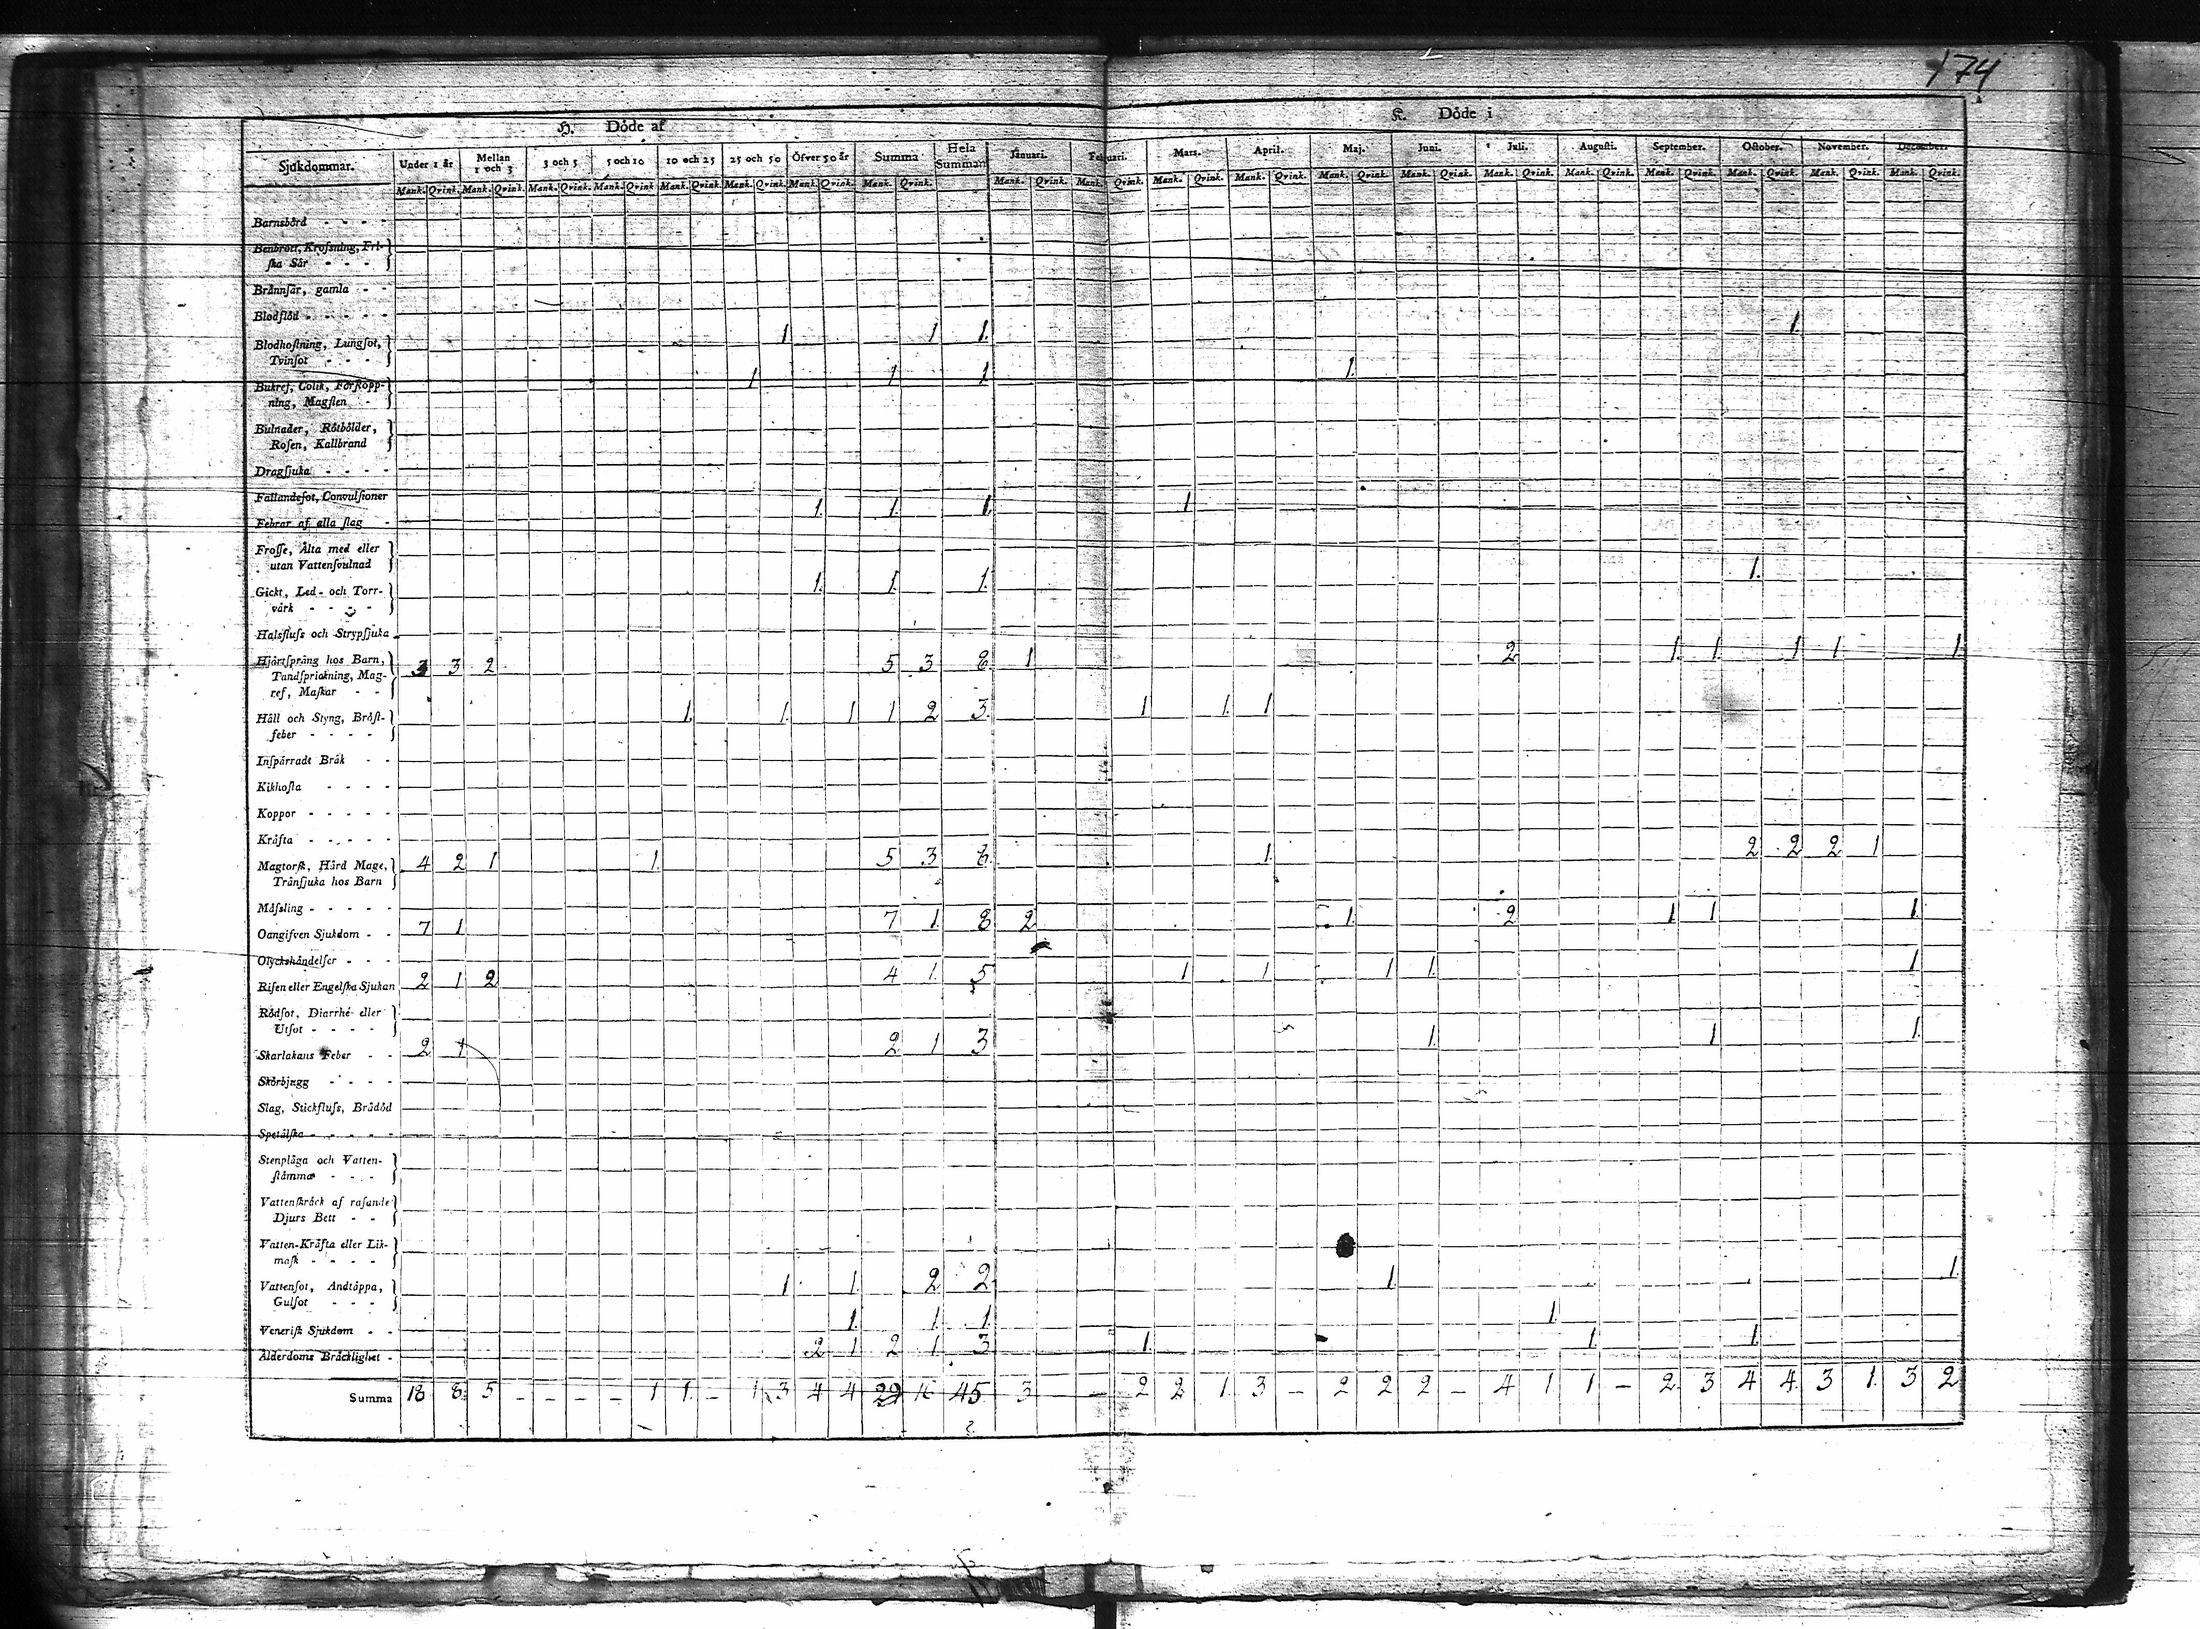 174
H. Döde af
K. Döde i
Sjukdommar. Under 1 år Mellan 1 och 3 3 och 5 5 och 10 10 och 25 25 och 50 Öfver 50 år Summa Hela Summan Januari. Februari. Mars. April. Maj. Juni. Juli. Augusti. September. October. November. December.
Mank. Qvink. Mank. Qvink. Mank. Qvink. Mank. Qvink. Mank. Qvink. Mank. Qvink. Mank. Qvink. Mank. Qvink. Mank. Qvink. Mank. Qvink. Mank. Qvink. Mank. Qvink. Mank. Qvink. Mank. Qvink. Mank. Qvink. Mank. Qvink. Mank. Qvink. Mank. Qvink. Mank. Qvink. Mank. Qvink.
Barnsbörd - - - -
Benbrott, Krosning, Fri-
ska Sår - - -
Brännsår, gamla - -
Blodflöd - - - - -
Blodhostning, Lungsot, 1 1 1. 1
Tvinsot - - -
Bukref, Colik, Förstopp- 1 1 1 1.
ning, Magsten -
Bulnader, Rötbölder,
Rosen, Kallbrand
Dragsjuka - - - -
Fallandesot, Convulsioner
Febrar af alla slag - 1. 1. 1. 1
Frosse, Älta med eller
utan Vattensvulnad
Gickt, Led- och Torr- 1. 1. 1. 1.
värk - - - -
Halsfluss och Strypsjuka
Hjärtsprång hos Barn, 3 3 2 5 3 8. 1 2 1. 1. 1 1 1.
Tandsprickning, Mag-
ref, Maskar - -
Håll och Styng, Bröst- 1. 1. 1 1 2 3. 1 1. 1
feber - - - -
Inspärradt Bråk - -
Kikhosta - - - -
Koppor - - - - -
Kräfta - - - - -
Magtorsk, Hård Mage, 4 2 1 1. 5 3 8. 1. 2 2 2 1
Tränsjuka hos Barn
Måssling - - - - -
Oangifven Sjukdom - - 7 1 7 1. 8 2 1. 2 1. 1 1.
Olyckshändelser - - -
Risen eller Engelska Sjukan 2 1 2 4 1. 5 1 1 1 1. 1
Rödsot, Diarrhé eller
Utsot - - - -
Skarlakans Feber - - 2 1 2 1 3 1. 1 1.
Skörbjugg - - - -
Slag, Stickfluss, Brådöd
Spetälska - - - -
Stenplåga och Vatten-
stämma - - -
Vattenskräck af rasande
Djurs Bett - -
Vatten-Kräfta eller Lik-
mask - - - -
Vattensot, Andtäppa, 1 1. 2 2 1 1.
Gulsot - - -
Venerisk Sjukdom - - 1. 1. 1. 1
Ålderdoms Bräcklighet - 2 1 2 1 3 1. 1 1.
Summa 18 8 5 - - - - 1 1. - 1 3 4 4 29 16 45 3 - - 2 2 1. 3 - 2 2 2 - 4 1. 1 - 2 3 4 4. 3 1. 3 2